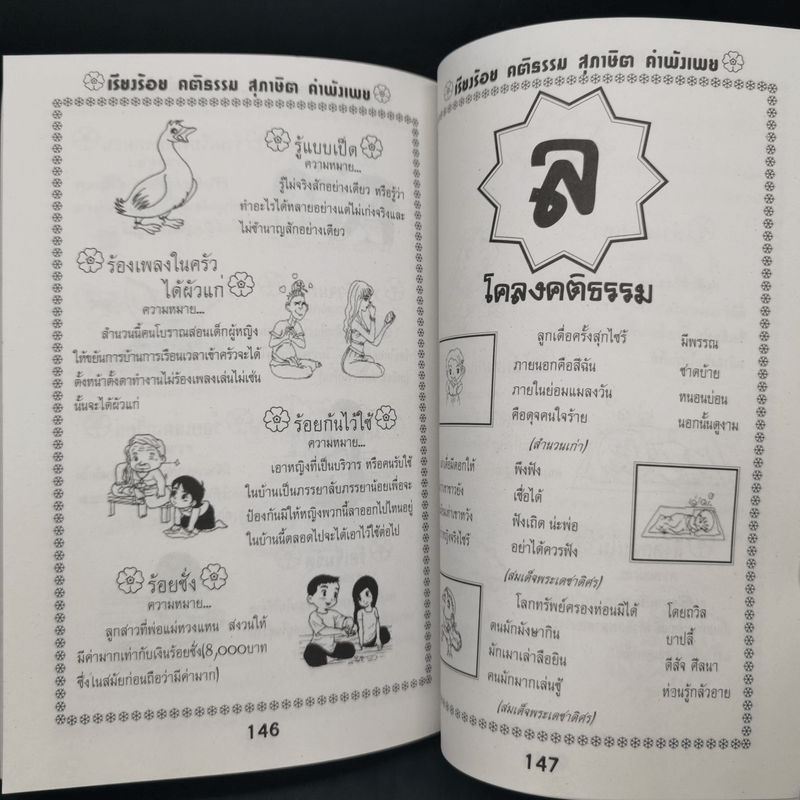 เรียงร้อย คติธรรม สุภาษิต คำพังเพย
รู้แบบเป็ด
ความหมาย...
รู้ไม่จริงสักอย่างเดียว หรือรู้ว่า
ทำอะไรได้หลายอย่างแต่ไม่เก่งจริงและ
ไม่ชำนาญสักอย่างเดียว
ร้องเพลงในครัว
ได้ผัวแก่
ความหมาย...
สำนวนนี้คนโบราณสอนเด็กผู้หญิง
ให้ขยันการบ้านการเรือนเวลาเข้าครัวจะได้
ตั้งหน้าตั้งตาทำงานไม่ร้องเพลงเล่นไม่เช่น
นั้นจะได้ผัวแก่
ร้อยกันไว้ใช้
ความหมาย...
เอาหญิงที่เป็นบริวาร หรือคนรับใช้
ในบ้านเป็นภรรยาลับภรรยาน้อยเพื่อจะ
ป้องกันมิให้หญิงพวกนี้ลาออกไปไหนอยู่
ในบ้านนี้ตลอดไปจะได้เอาไว้ใช้ต่อไป
ร้อยชั่ง
ความหมาย...
ลูกสาวที่พ่อแม่หวงแหน สงวนให้
มีค่ามากเท่ากับเงินร้อยชั่ง(8,000บาท
ซึ่งในสมัยก่อนถือว่ามีค่ามาก)
146
เรียงร้อย คติธรรม สุภาษิต คำพังเพย
ล
โคลงคติธรรม
ลูกเดื่อครั้งสุกไซร้ มีพรรณ
ภายนอกคือสีฉัน ชาดบ้าย
ภายในย่อมแมลงวัน หนอนบ่อน
คือดุจคนใจร้าย นอกนั้นดูงาม
(สำนวนเก่า)
พึงฟัง
เชื่อได้
ฟังเถิด น่ะพ่อ
อย่าได้ควรฟัง
(สมเด็จพระเดชาดิศร)
โลกทรัพย์ครองห่อนมิได้ โดยถวิล
คนมักมังษากิน บาปลี้
มักเมาเล่าลือยิน ดีสัจ ศีลนา
คนมักมากเล่นชู้ ห่อนรู้กลัวอาย
(สมเด็จพระเดชาดิศร)
147